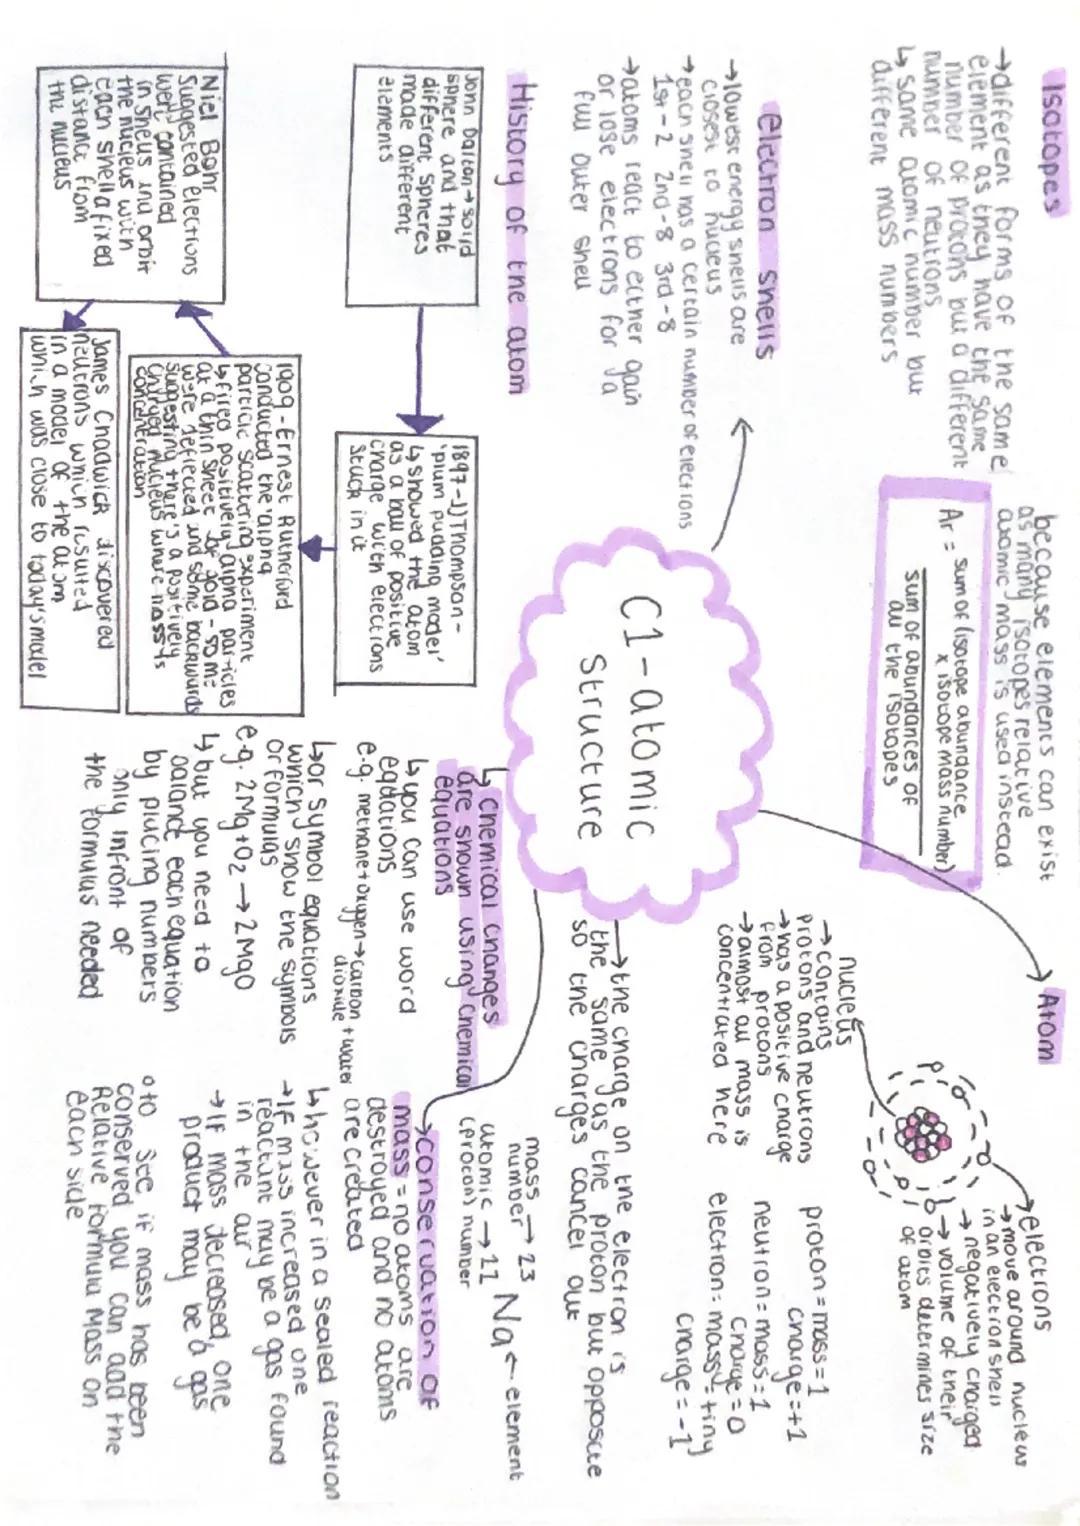 C1-atomic
Structure
Isotopes
→different forms of the same
element as they have the same
number of protons but a different
number of neutrons
↳ same atomic number but
different mass numbers
because elements can exist
as many isotopes relative
atomic mass is used instead.
Ar = sum of (isotope abundance
x isotope mass number)
sum of abundances of
all the isotopes
Atom
electrons
→move around nucleus
in an electron shell
→ negatively charged
→ volume of their
orbits determines size
of atom
nucleus
→ contains
protons and neutrons
→has a positive charge
from protons
→almost all mass is
concentrated here
proton = mass = 1
charge = +1
neutron = mass = 1
charge = 0
electron = mass = tiny
charge = -1
→the charge on the electron is
the same as the proton but opposite
so the charges cancel out
mass → 23 Na ← element
number
atomic → 11
(proton) number
electron shells
→lowest energy shells are
closest to nucleus
→each shell has a certain number of electrons
1st-2 2nd-8 3rd-8
→atoms react to either gain
or lose electrons for a
full outer shell
History of the atom
John Dalton → solid
sphere and that
different spheres
made different
elements
1897-JJ Thompson-
'plum pudding model'
↳ showed the atom
as a ball of positive
charge with electrons
stuck in it
1909-Ernest Rutherford
conducted the 'alpha
particle scattering experiment
↳ fired positively alpha particles
at a thin sheet of gold - some
were deflected and some backwards
suggesting there's a positively
charged nucleus where mass is
Niel Bohr
suggested electrons
were contained
in shells and orbit
the nucleus with
each shell a fixed
distance from
the nucleus
James Chadwick discovered
neutrons which resulted
in a model of the atom
which was close to today's model
↳ chemical changes
are shown using chemical
equations
↳ you can use word
equations
e.g. methane + oxygen → carbon + water
dioxide
↳or symbol equations
which show the symbols
or formulas
e.g. 2Mg + O2 → 2MgO
↳ but you need to
balance each equation
by placing numbers
only infront of
the formulas needed
→conservation of
mass = no atoms are
destroyed and no atoms
are created
↳ however in a sealed reaction
→ If mass increased one
reactant may be a gas found
in the air
→ If mass decreased, one
product may be a gas
o to see if mass has been
conserved you can add the
Relative formula Mass on
each side